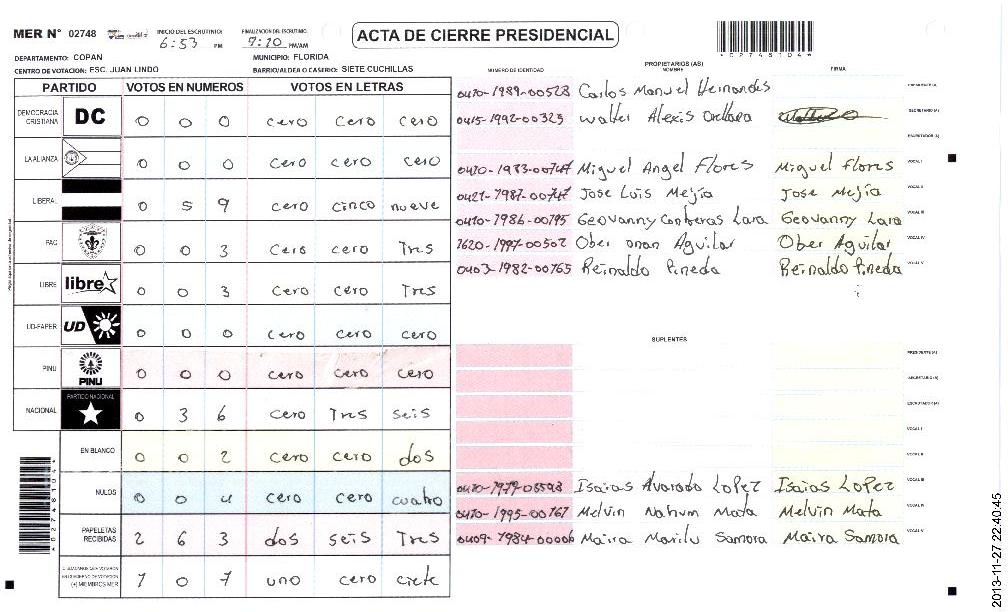 MER N° 02748 INICIO DEL ESCRUTINIO: 6:53 PM FINALIZACION DEL ESCRUTINIO: 7:20 PM/AM
ACTA DE CIERRE PRESIDENCIAL
DEPARTAMENTO: COPAN MUNICIPIO: FLORIDA
CENTRO DE VOTACION: ESC. JUAN LINDO BARRIO/ALDEA O CASERIO: SIETE CUCHILLAS
PARTIDO VOTOS EN NUMEROS VOTOS EN LETRAS
DEMOCRACIA CRISTIANA DC 0 0 0 cero cero cero
LA ALIANZA 0 0 0 cero cero cero
LIBERAL 0 5 9 cero cinco nueve
PAC 0 0 3 cero cero Tres
LIBRE libre 0 0 3 cero cero Tres
UD-FAPER UD 0 0 0 cero cero cero
PINU PINU 0 0 0 cero cero cero
NACIONAL PARTIDO NACIONAL 0 3 6 cero Tres seis
EN BLANCO 0 0 2 cero cero dos
NULOS 0 0 4 cero cero cuatro
PAPELETAS RECIBIDAS 2 6 3 dos seis Tres
CIUDADANOS QUE VOTARON EN CUADERNO DE VOTACION (+) MIEMBROS MER 1 0 7 uno cero ciete
PROPIETARIOS (AS)
NUMERO DE IDENTIDAD NOMBRE FIRMA
0420-1989-00528 Carlos Manuel Hernandes
0415-1992-00323 Walter Alexis Orellana SECRETARIO (A)
ESCRUTADOR (A)
0420-1983-00747 Miguel Angel Flores Miguel flores VOCAL I
0421-1987-00747 Jose Luis Mejía Jose Mejía VOCAL II
0420-1986-00795 Geovanny Contreras Lara Geovanny Lara VOCAL III
1620-1997-00502 Ober onan Aguilar Ober Aguilar VOCAL IV
0403-1982-00765 Reinaldo Pineda Reinaldo Pineda VOCAL V
SUPLENTES
PRESIDENTE (A)
SECRETARIO (A)
ESCRUTADOR (A)
VOCAL I
VOCAL II
0420-1979-08598 Isaias Alvarado Lopez Isaias Lopez VOCAL III
0420-1995-00767 Melvin Nahum Mata Melvin Mata VOCAL IV
0409-1984-00006 Maira Marilu Samora Maira Samora VOCAL V
2013-11-27 22:40:45